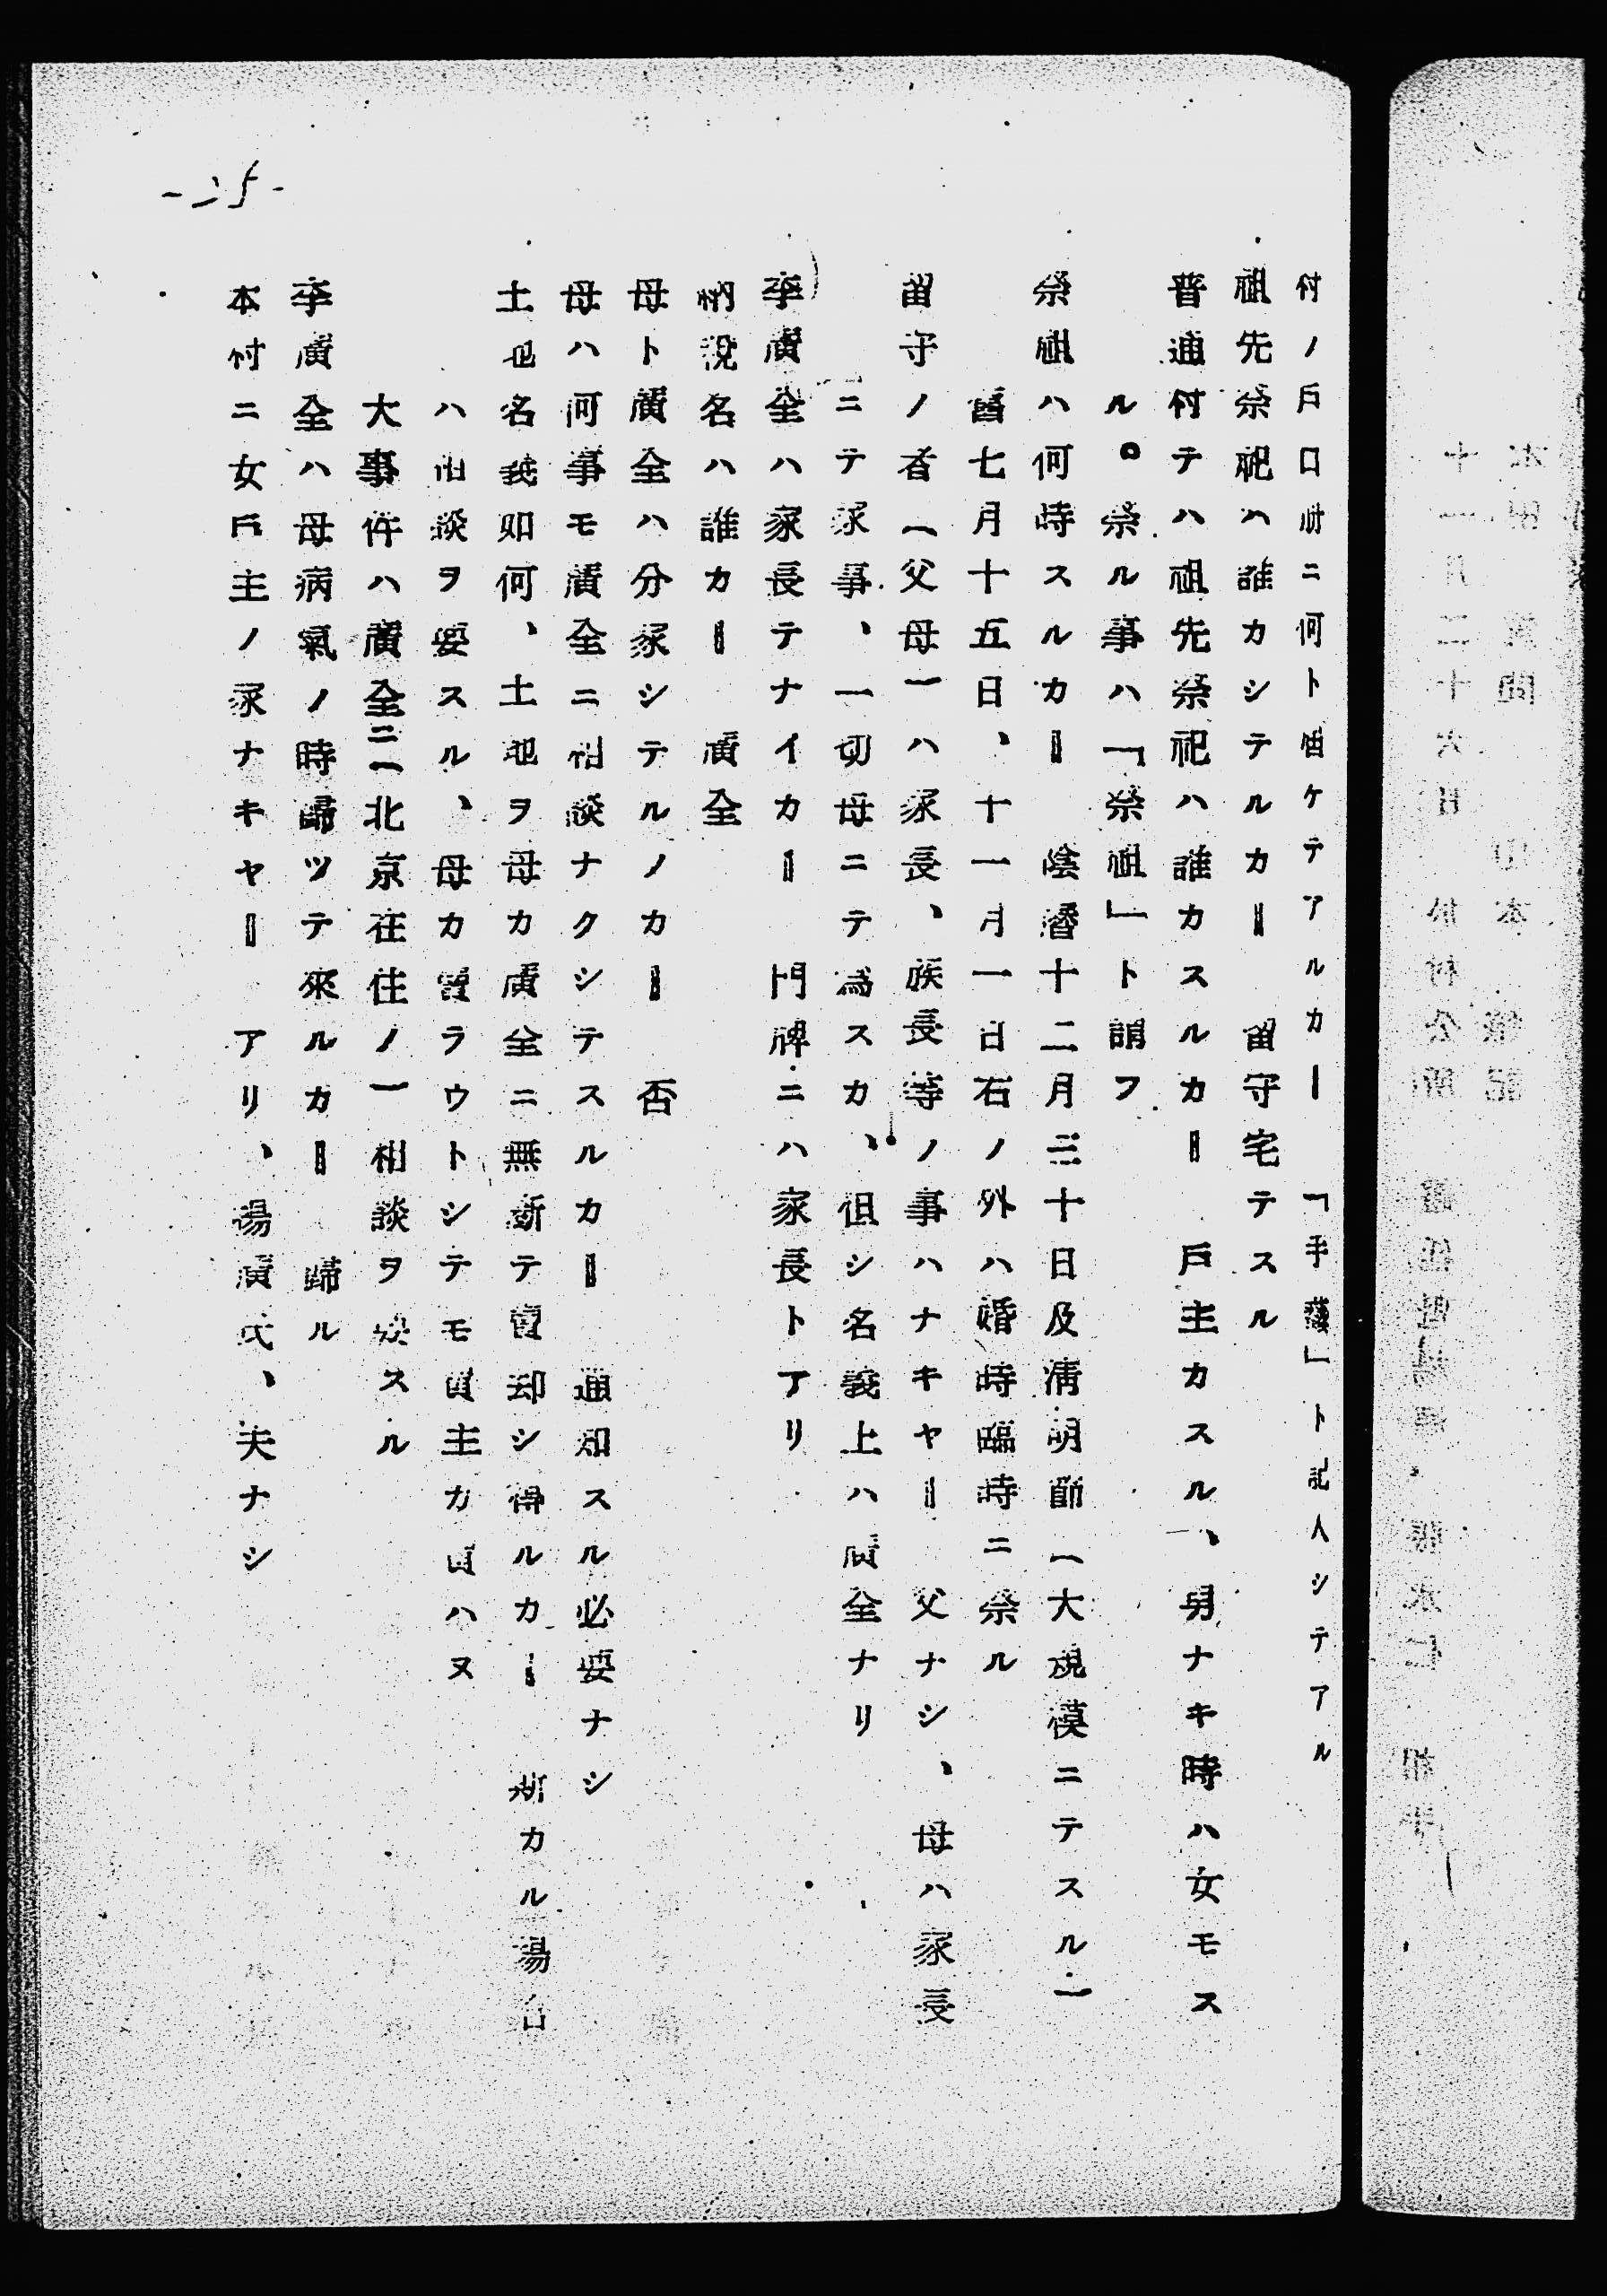 村ノ戸口册ニ何ト届ケテアルカー‖　「手藝」ト記入シテアル
祖先祭祀ハ誰カシテルカー‖　留守宅テスル
普通村テハ祖先祭祀ハ誰カスルカー‖　戸主カスル、男ナキ時ハ女モス
ル。祭ル事ハ「祭祖」ト謂フ
祭祖ハ何時スルカー‖　陰曆十二月三十日及淸明節（大規模ニテスル）
舊七月十五日、十一月一日右ノ外ハ婚時臨時ニ祭ル
留守ノ者（父母）ハ家長、族長等ノ事ハナキヤー‖　父ナシ、母ハ家長
ニテ家事、一切母ニテ為スカ、但シ名義上ハ廣全ナリ
李廣全ハ家長テナイカー‖　門牌ニハ家長トアリ
納稅名ハ誰カー‖　廣全
母ト廣全ハ分家シテルノカー‖　否
母ハ何事モ廣全ニ相談ナクシテスルカー‖　通知スル必要ナシ
土地名義如何、土地ヲ母カ廣全ニ無斷テ賣却シ得ルカー‖　斯カル場合
ハ相談ヲ要スル、母カ賣ラウトシテモ買主カ買ハヌ
大事件ハ廣全ニ（北京在住ノ）相談ヲ要スル
李廣全ハ母病氣ノ時歸ツテ來ルカー‖　歸ル
本村ニ女戸主ノ家ナキヤー‖　アリ、湯廣氏、夫ナシ
-25-